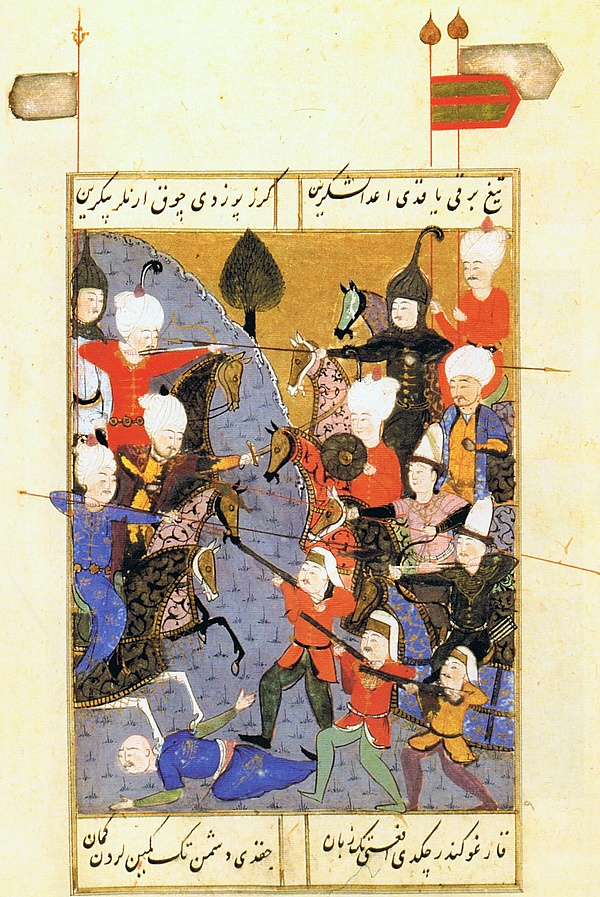 تیغ برقی یاقدی اعدا لشکرین
گرز بوزدی چوق ارنلر پیکرین
قارغو چکدی افعی تک زبان
چقدی دشمن تک کمینلردن کمان